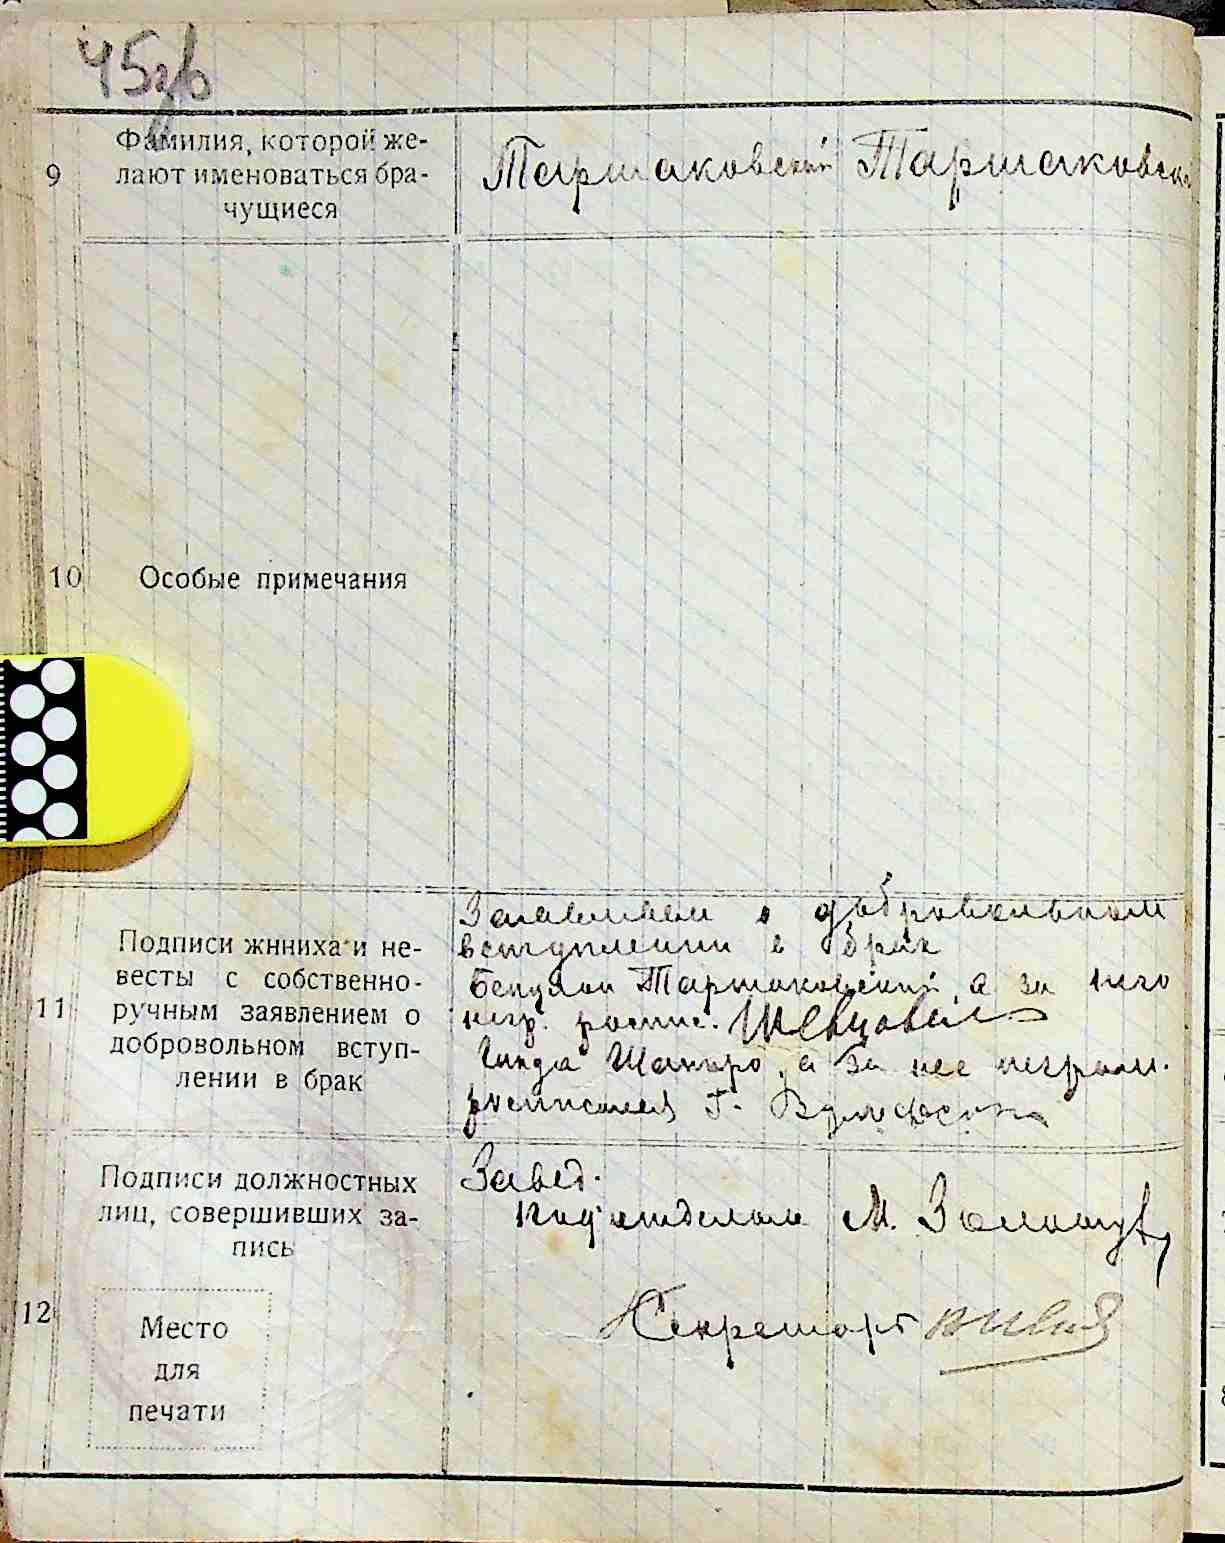 45зв
Фамилия, которой же-
9 лают именоваться бра-
чущиеся
Таршаковский Таршаковская
10 Особые примечания
Подписи жниха и не-
весты с собственно-
11 ручным заявлением о
добровольном вступ-
лении в брак
Заявляем о добровольном
вступлении в брак
Таршаковский, а за него
негр. роспис. Шевцова
Гинда Шапиро, а за нее неграм.
росписался Г. Вульфсон
Подписи должностных
лиц, совершивших за-
пись
12 Место
для
печати
Завед.
подотделом М.
Секретарь